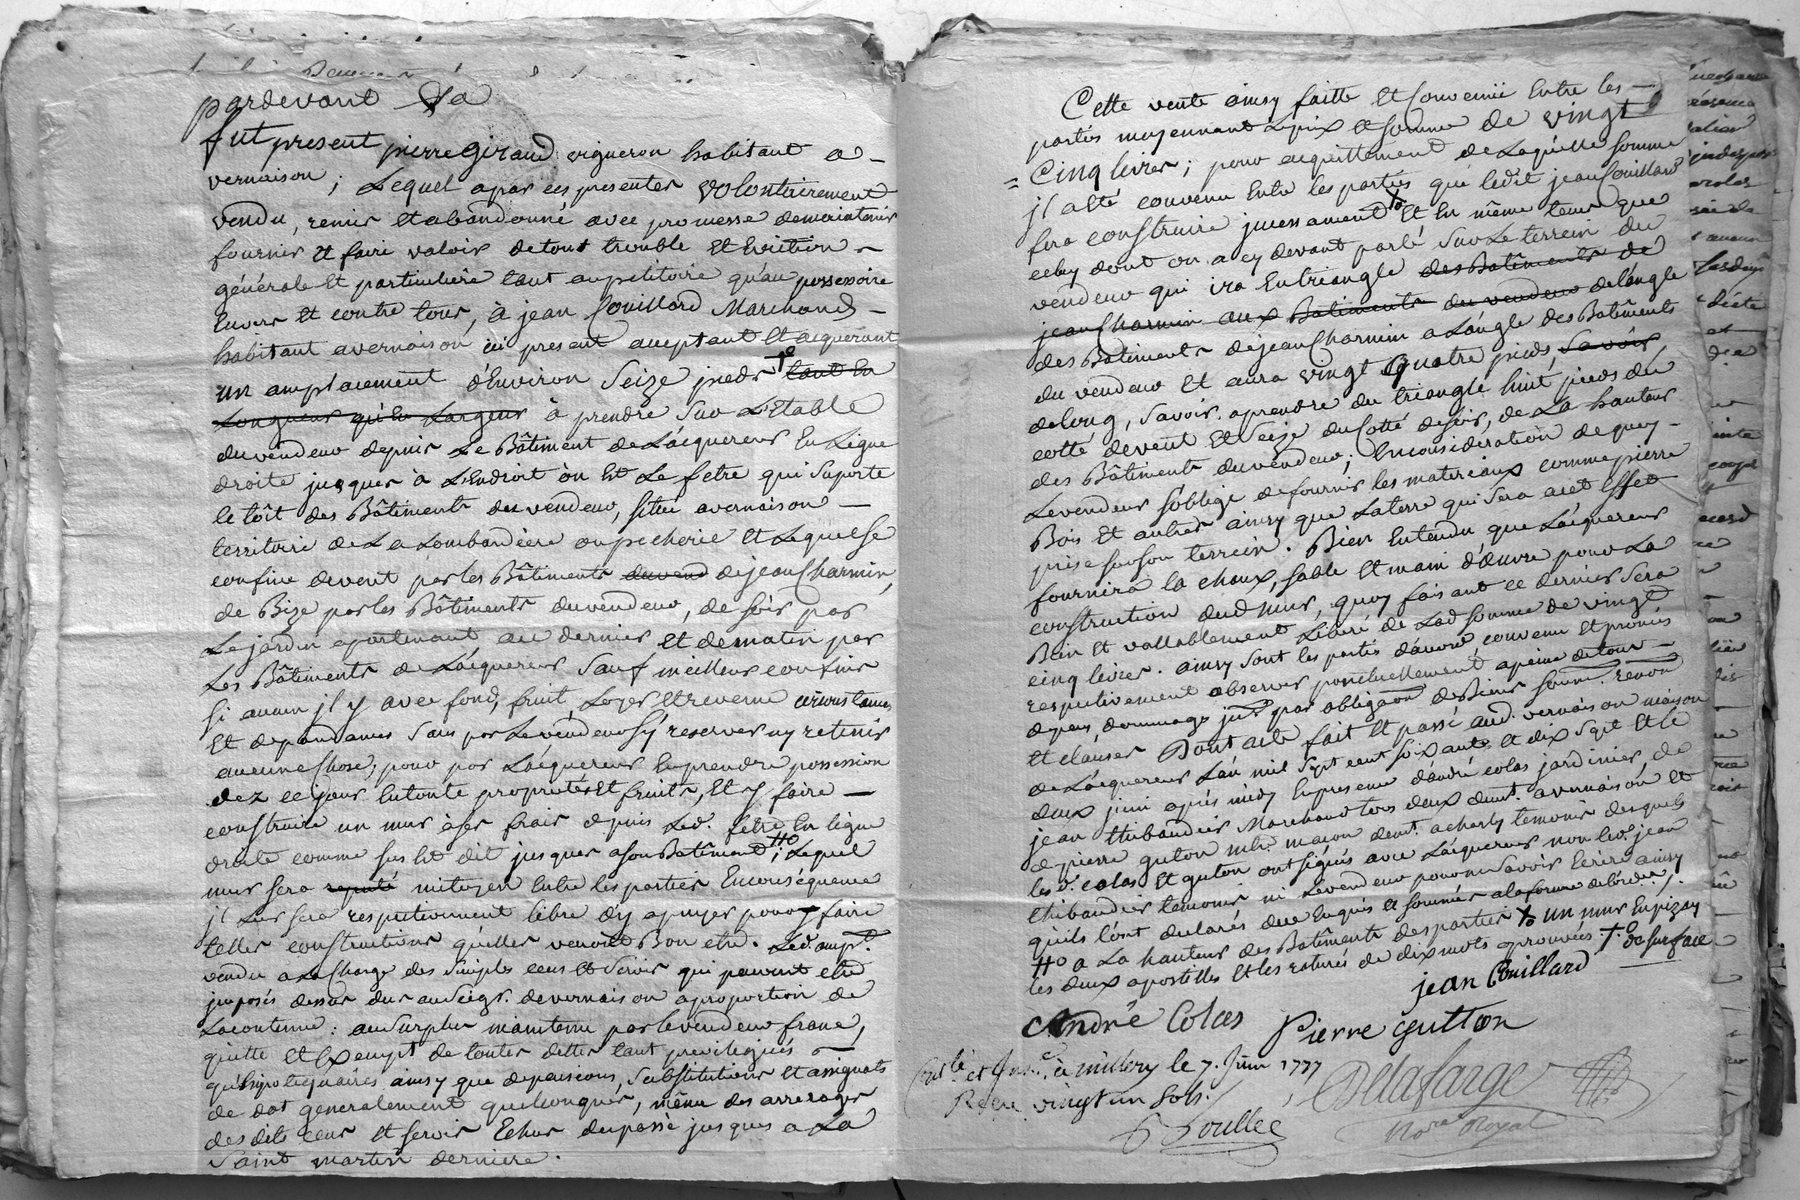 pardevant &a
fut present pierre giraud vigneron habitant a
vernaison ; Lequel a par ces presentes volontairement
vendu, remis et abandonné avec promesse de maintenir
fournir et faire valoir de tout trouble et Eviction
générale et particuliere tant au petitoire qu'au possessoire
Envers et contre tous, à jean Couillard Marchand
habitant a vernaison ici present acceptant et acquerant
un amplacement d'Environ Seize pieds To tant En
Longueur qu'En Largeur à prendre sur L'Etable
du vendeur depuis Le Bâtiment de L'acquereur En Ligne
droite jusques à L'Endroit òu Est Le fetre qui suporte
le tôit des Bâtiments du vendeur, situé a vernaison
territoire de La Lombardiere ou picherie et Lequel se
confine de vent par les Bâtiments du vend de jean Charmin,
de Bize par les Bâtiments du vendeur, de soir par
Le jardin apartenant au dernier et de matin par
Les Bâtiments de L'acquereur Sauf meilleurs confins
si aucun jl y avec fond, fruit, Loyer et revenu circonstances
et dependances Sans par Le vendeur s'y reserver ny retenir
aucune Chose; pour par L'acquereur En prendre possession
dez ce jour En toute proprietés et fruits, Et y faire
construire un mur à ses frais depuis Led. fetre En ligne
droite comme sus Est dit jusques a son Batiment #o ; Lequel
mur sera reputé mitoyen Entre les parties En consequence
jl Leur sera respectivement libre d'y apuyer pour y faire
telles constructions qu'elles verront Bon etre. Led. ampt.
vendu a La Charge des simples cens et servis qui peuvent etre
jmposés dessus dus au Seigr. de vernaison a proportion de
La contenue : au surplus maintenu par le vendeur franc,
quitte et Exempt de toutes dettes tant privilegiés
qu'hipotequaires ainsy que de pensions, substitutions et assignats
de dot generalement quelconques, même des arrerages
des dits cens et servis Echus du passé jusques a La
Saint martin derniere.
Cette vente ainsy faitte et Convenüe Entre les
parties moyennant Le prix et somme de vingt
Cinq livres ; pour acquittement de Laquelle somme
jl a été convenu Entre les parties que ledit jean Couillard
fera construire jncessament Xo Et En même tems que
celuy dont on a cy devant parlé sur Le terrein du
vendeur qui ira En triangle des Batiments de
jean Charmin aux Batiments du vendeur de L'angle
des Batiments de jean Charmin a L'angle des Batiments
du vendeur et aura vingt quatre pieds Savoir
de long, savoir, a prendre du triangle huit pieds du
cotté de vent et Seize du Cotté de soir, de La hauteur
des Bâtiments du vendeur; En consideration de quoy
Le vendeur s'oblige de fournir les materiaux comme pierre
Bois et autres ainsy que La terre qui sera a cet Effet
prise sur son terrein. Bien Entendu que L'acquereur
fournira la chaux, sable et main d'œuvre pour La
construction dud. mur, quoy faisant ce dernier sera
Bien et vallablement Liberé de Lad. somme de vingt
cinq livres. ainsy sont les parties d'accord convenu et promis
respectivement observer ponctuellement a peine de tous
depens, dommages jnts. par obligaon. de Biens soumn. renon.
et clauses Dont acte fait et passé aud. vernaison maison
de L'acquereur L'an mil sept cent soixante et dix sept et le
deux juin après midy En presence d'andré colas jardinier, de
jean thibaudier Marchand tous deux demt. a vernaison et
de pierre guton mtre. maçon demt. a charly temoins desquels
les s. colas et guton ont signés avec L'acquereur non led. jean
thibaudier temoins ni Le vendeur pour ne savoir Ecrire ainsy
qu'ils l'ont declarés de ce Enquis et sommés a la forme de l'ordce ./.
#o a La hauteur des Bâtiments des parties Xo un mur En pizay
les deux apostilles et les raturés de dix mots aprouvées To. de surface
jean Couillard
André Colas Pierre Gutton
Conlé. et Jns.é à millery le 7. Juin 1777
Reçu vingt un sols.
Delafarge
Nore Royal